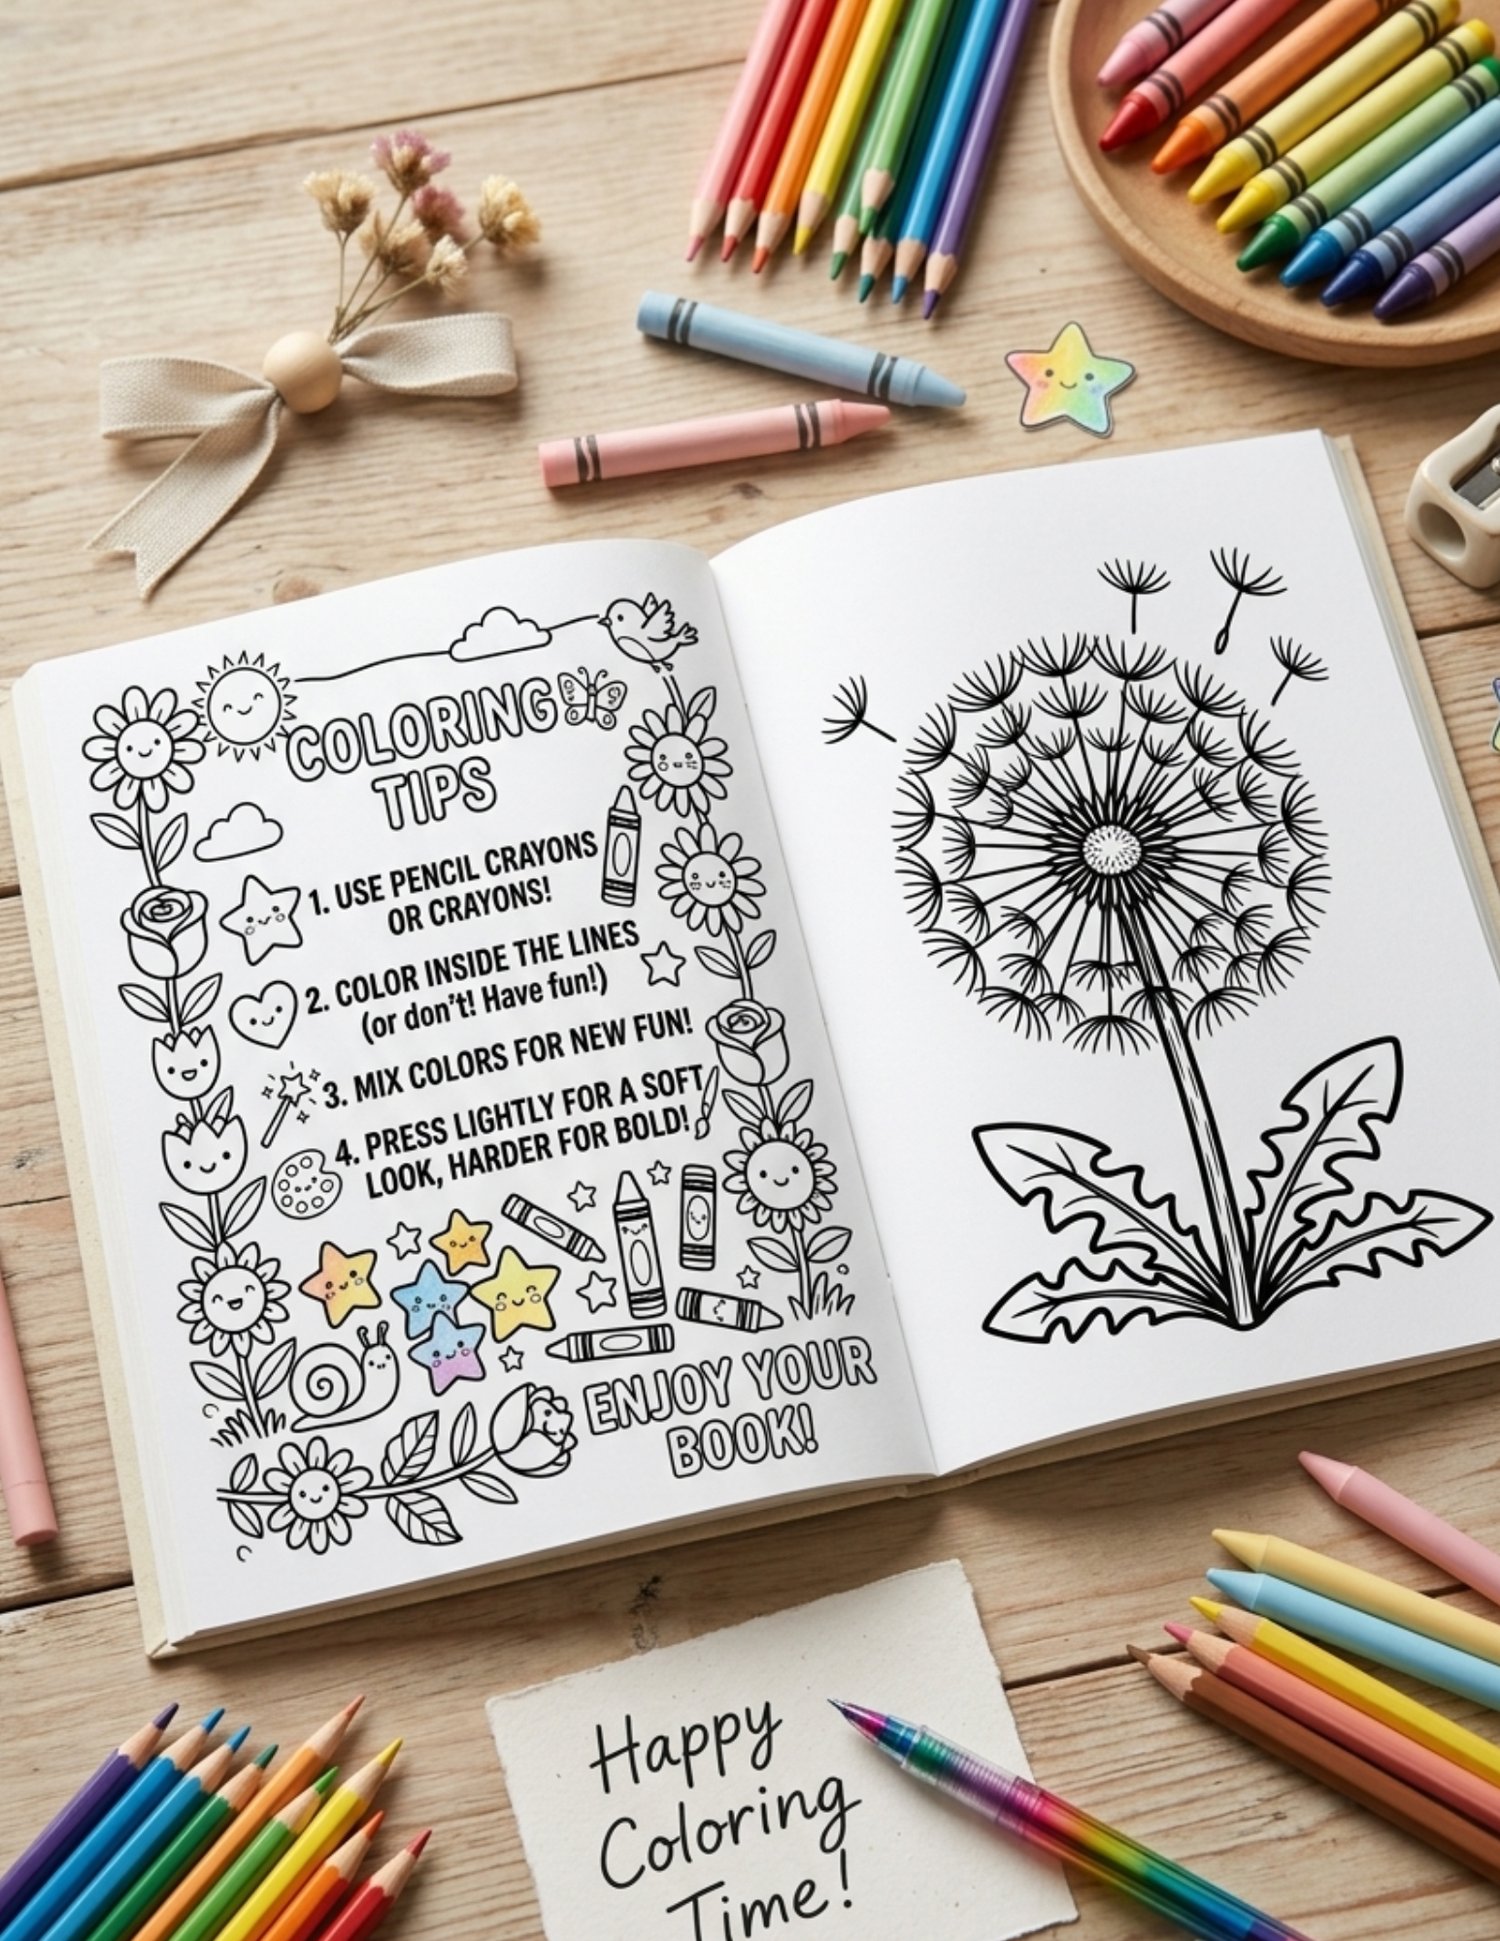 COLORING
TIPS
1. USE PENCIL CRAYONS
OR CRAYONS!
2. COLOR INSIDE THE LINES
(or don't! Have fun!)
3. MIX COLORS FOR NEW FUN!
4. PRESS LIGHTLY FOR A SOFT
LOOK, HARDER FOR BOLD!
ENJOY YOUR
BOOK!
Happy
Coloring
Time!